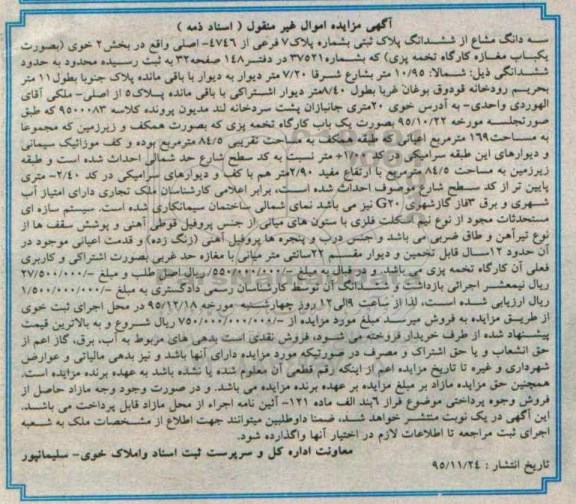 آگهی مزایده اموال غیر منقول ( اسناد ذمه )
سه دانگ مشاع از ششدانگ پلاک ثبتی بشماره پلاک ۷ فرعی از ۴۷۴۶- اصلی واقع در بخش ۲ خوی (بصورت
یکباب مغازه کارگاه تخمه پزی) که بشماره ۳۷۵۲۱ در دفتر ۱۴۸ صفحه ۳۲ به ثبت رسیده محدود به حدود
ششدانگی ذیل: شمالا: ۱۰/۹۵ متر بشارع شرقا ۷/۲۰ متر دیوار به دیوار با باقی مانده پلاک جنوبا بطول ۱۱ متر
بحریم رودخانه قودوق بوغان غربا بطول ۸/۴۰ متر دیوار اشتراکی با باقی مانده پلاک ۵ از اصلی- ملکی آقای
الهوردی واحدی- به آدرس خوی ۲۰متری جانبازان پشت سردخانه لند مدیون پرونده کلاسه ۹۵۰۰۰۸۳ که طبق
صورتجلسه مورخه ۹۵/۱۰/۲۲ بصورت یک باب کارگاه تخمه پزی که بصورت همکف و زیرزمین که مجموعا
به مساحت ۱۶۹ مترمربع اعیانی که طبقه همکف به مساحت تقریبی ۸۴/۵ مترمربع بوده و کف موزائیک سیمانی
و دیوارهای این طبقه سرامیکی در کد ۱/۰۰+ متر نسبت به کد سطح شارع حد شمالی احداث شده است و طبقه
زیرزمین به مساحت ۸۴/۵ مترمربع با ارتفاع مفید ۲/۹۰متر هم با کف و دیوارهای سرامیکی در کد ۲/۴۰- متری
پایین تر از کد سطح شارع موصوف احداث شده است، برابر اعلامی کارشناسان ملک تجاری دارای امتیاز آب
شهری و برق ۳فاز گازشهری (G۲۰) نیز می باشد نمای شمالی ساختمان سیمانکاری شده است. سیستم سازه ای
مستحدثات مجود از نوع نیم اسکلت فلزی با ستون های میانی از جنس پروفیل قوطی آهنی و پوشش سقف ها از
نوع تیرآهن و طاق ضربی می باشد و جنس درب و پنجره ها پروفیل آهنی (زنگ زده) و قدمت اعیانی موجود در
آن حدود ۱۲سال قابل تخمین و دیوار مقسم ۲۲سانتی متر میانی با مغازه حد غربی بصورت اشتراکی و کاربری
فعلی آن کارگاه تخمه پزی می باشد. و در قبال به مبلغ ۵۵۰/۰۰۰/۰۰۰/- ریال اصل طلب و مبلغ ۲۷/۵۰۰/۰۰۰/-
ریال نیمعشر اجرائی بازداشت و ششدانگ آن توسط کارشناسان رسمی دادگستری به مبلغ ۱/۵۰۰/۰۰۰/۰۰۰/-
ریال ارزیابی شده است، لذا از ساعت ۹ الی ۱۲ روز چهارشنبه مورخه ۹۵/۱۲/۱۸ در محل اجرای ثبت خوی
از طریق مزایده به فروش میرسد مبلغ مورد مزایده از ۷۵۰/۰۰۰/۰۰۰/- ریال شروع و به بالاترین قیمت
پیشنهاد شده از طرف خریدار فروخته می شود، فروش نقدی است بدهی های مربوط به آب، برق، گاز اعم از
حق انشعاب و یا حق اشتراک و مصرف در صورتیکه مورد مزایده دارای آنها باشد و نیز بدهی مالیاتی و عوارض
شهرداری و غیره تا تاریخ مزایده اعم از اینکه رقم قطعی آن معلوم شده یا نشده باشد به عهده برنده مزایده است،
همچنین حق مزایده مازاد بر مبلغ مزایده بر عهده برنده مزایده می باشد. و در صورت وجود وجه مازاد حاصل از
فروش وجوه پرداختی موضوع فراز ۶بند الف ماده ۱۲۱- آئین نامه اجراء از محل مازاد قابل پرداخت می باشد.
این آگهی در یک نوبت منتشر خواهد شد، ضمنا داوطلبین میتوانند جهت اطلاع از مشخصات ملک به شعبه
اجرای ثبت مراجعه تا اطلاعات لازم در اختیار آنها واگذارده شود.
معاونت اداره کل و سرپرست ثبت اسناد واملاک خوی- سلیمانپور
تاریخ انتشار : ۹۵/۱۱/۲۴